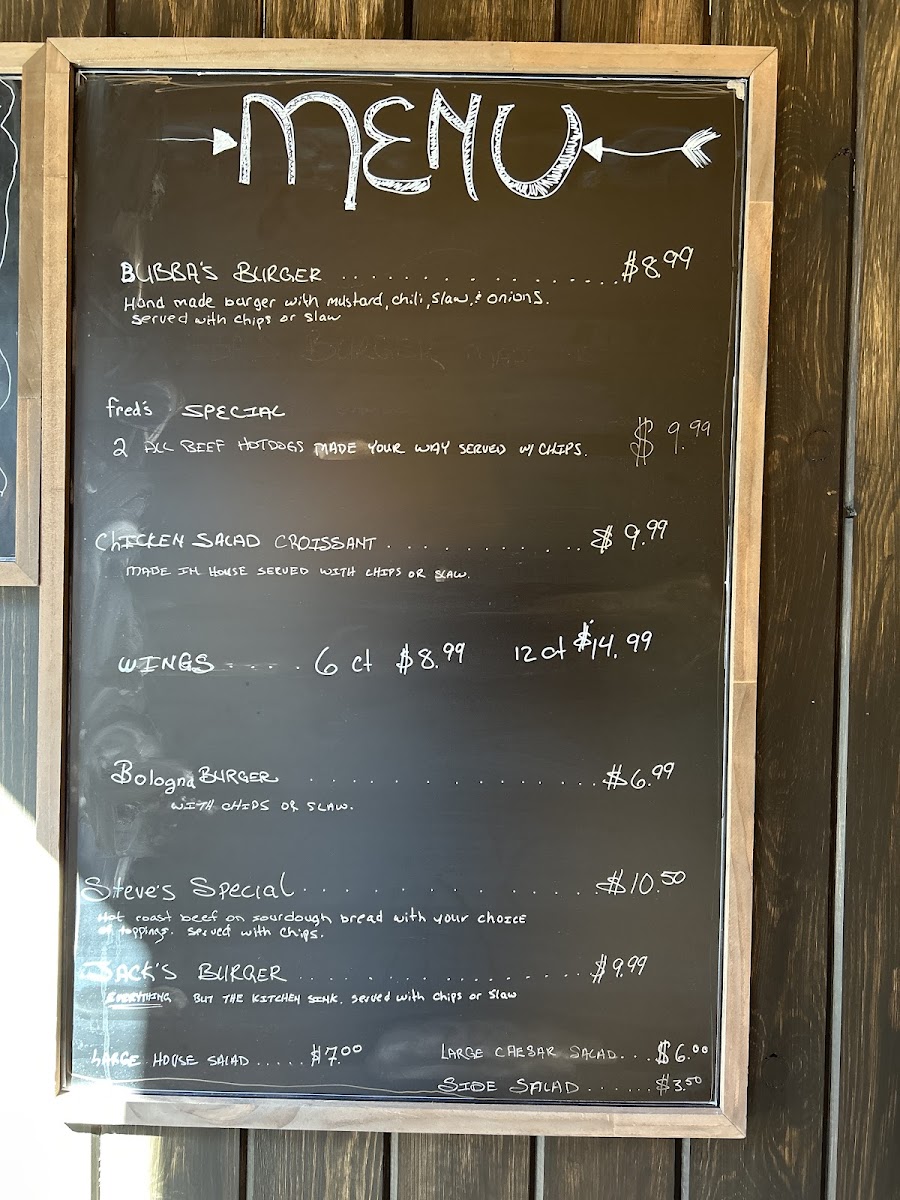 MENU
BUBBA'S BURGER .................... $8.99
Hand made burger with mustard, chili, slaw, & onions.
served with chips or slaw
fred's SPECIAL
2 ALL BEEF HOTDOGS MADE YOUR WAY SERVED W/ CHIPS. $9.99
Chicken Salad CROISSANT ............ $9.99
MADE IN HOUSE SERVED WITH CHIPS OR SLAW.
WINGS .... 6 ct $8.99 12 ct $14.99
Bologna BURGER ............ $6.99
WITH CHIPS OR SLAW.
Steve's Special ............ $10.50
Hot roast beef on sourdough bread with your choice
of toppings. served with chips.
JACK'S BURGER ............ $9.99
EVERYTHING BUT THE KITCHEN SINK. served with chips or slaw
LARGE HOUSE SALAD ..... $7.00
LARGE CAESAR SALAD... $6.00
SIDE SALAD ...... $3.50